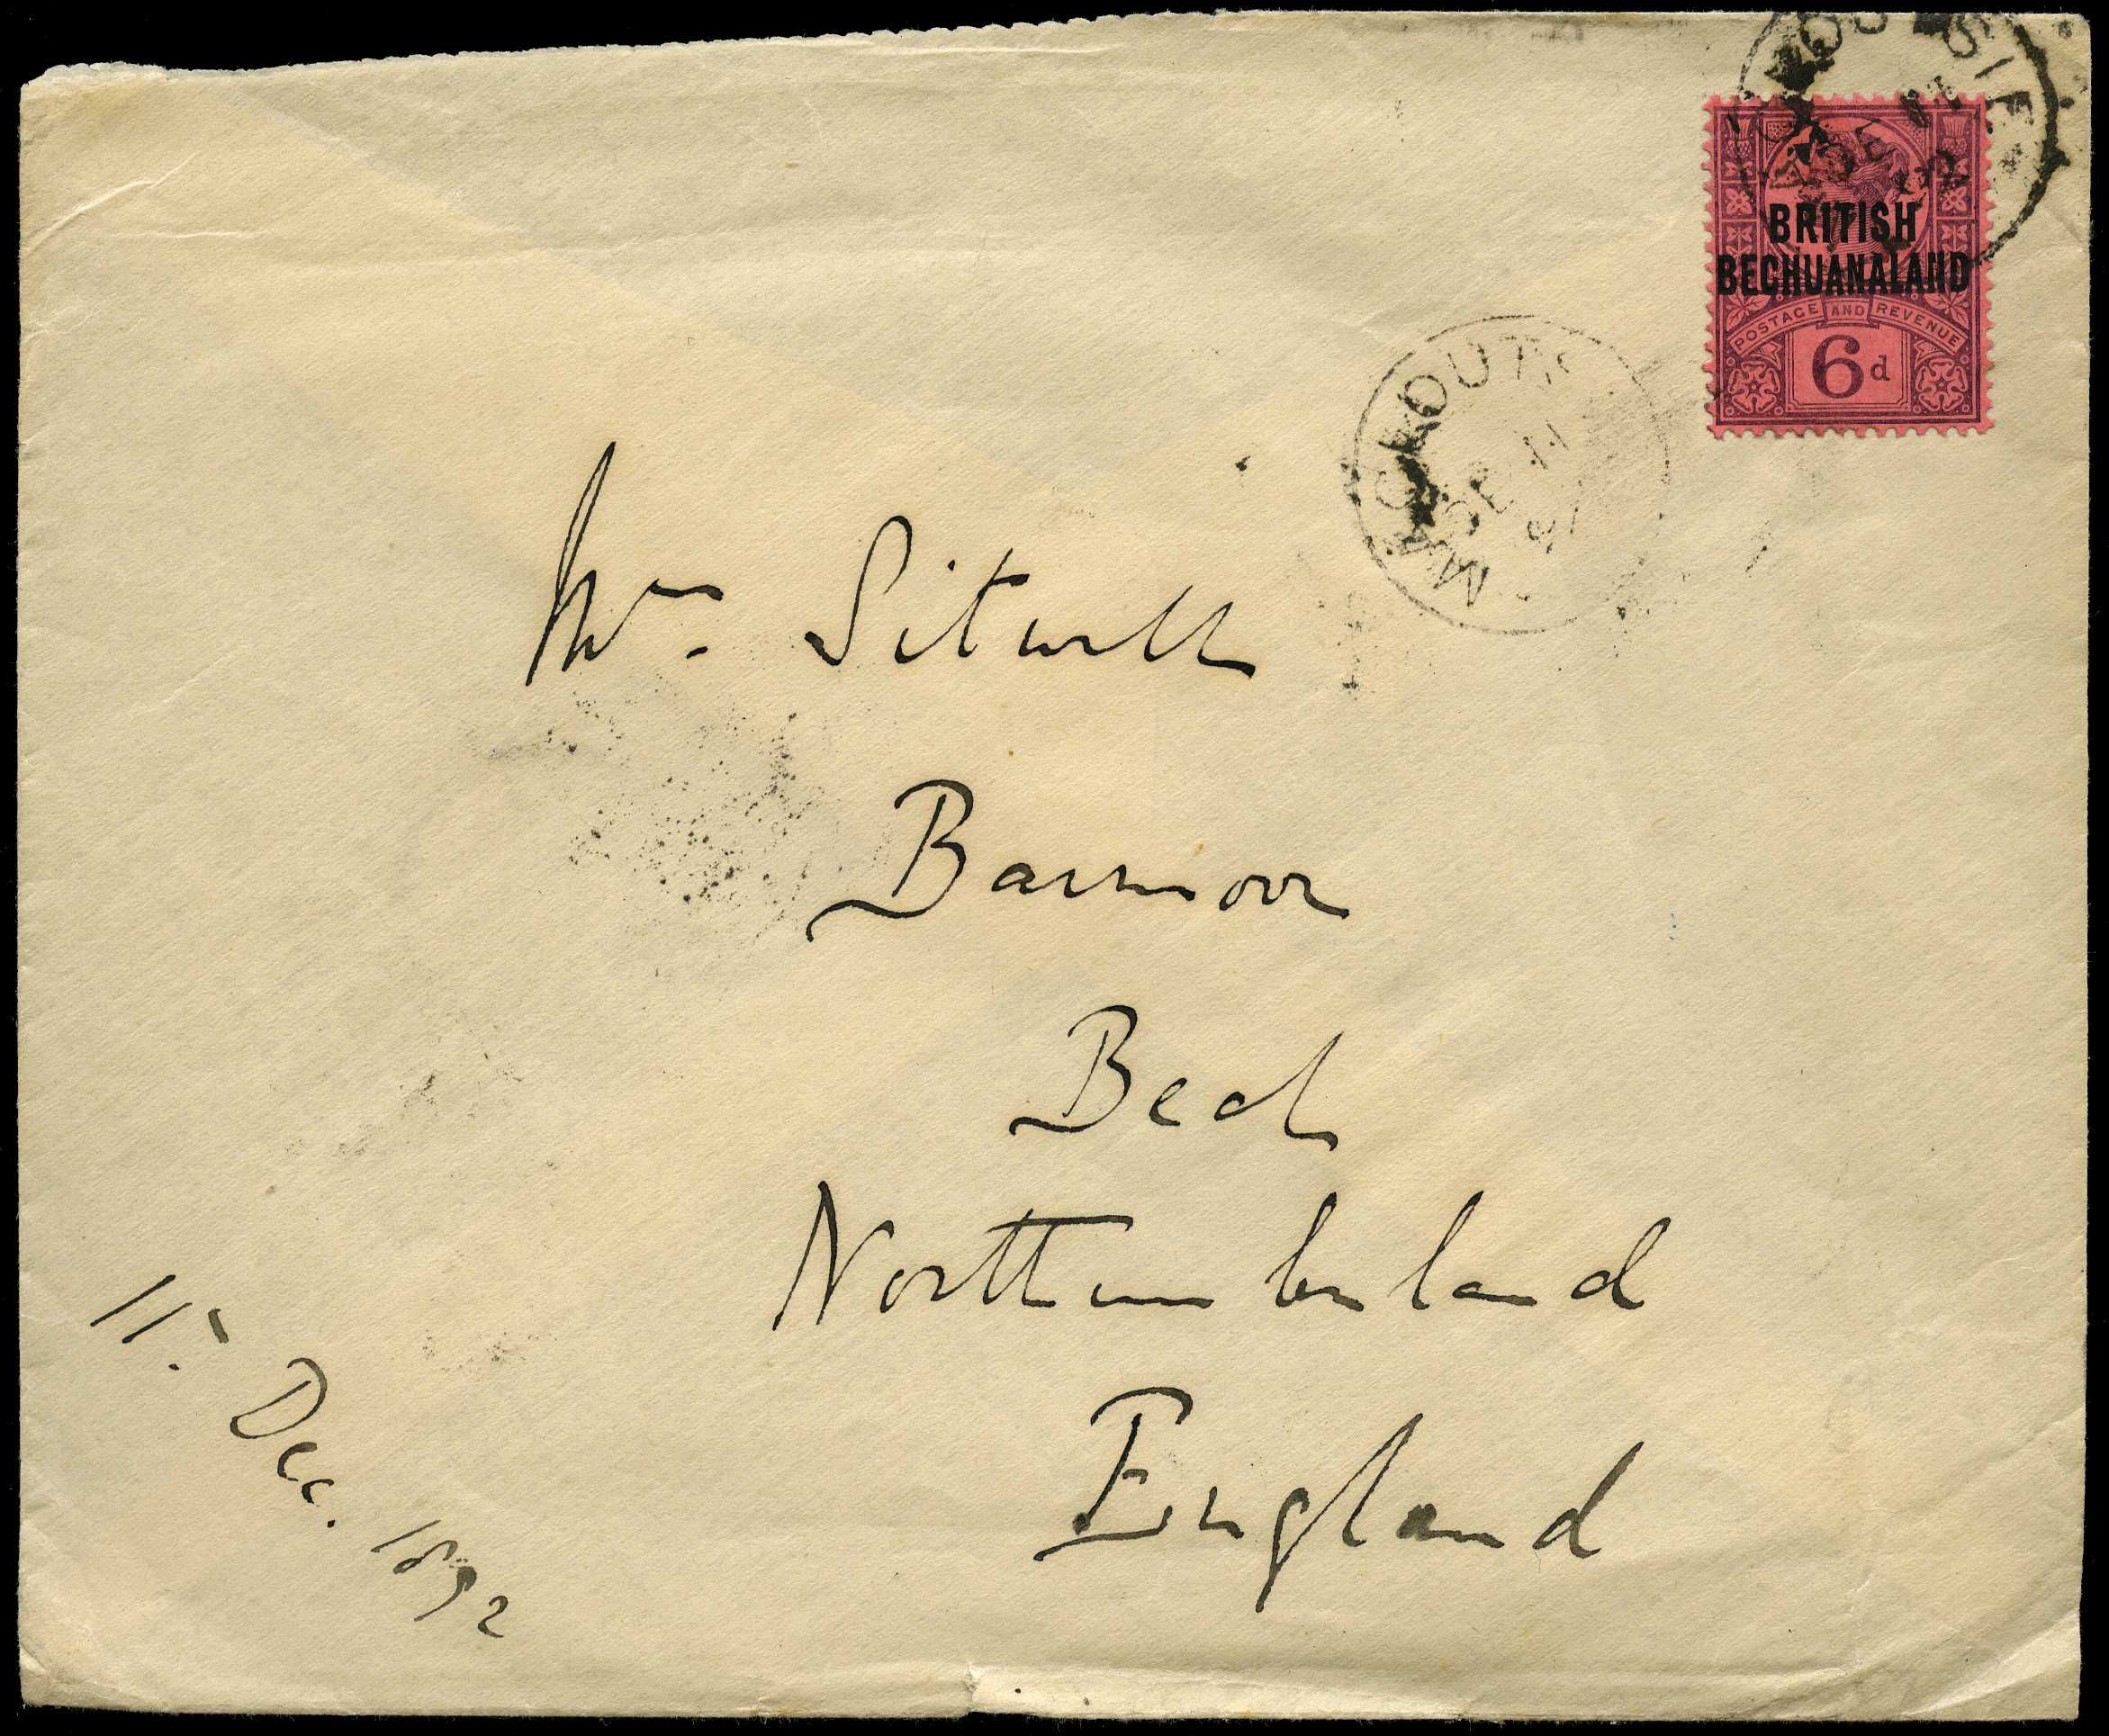 BRITISH
BECHUANALAND
POSTAGE AND REVENUE
6d
DE 11
Mrs. Sitwell
Barmoor
Beal
Northumberland
England
11. Dec. 1892